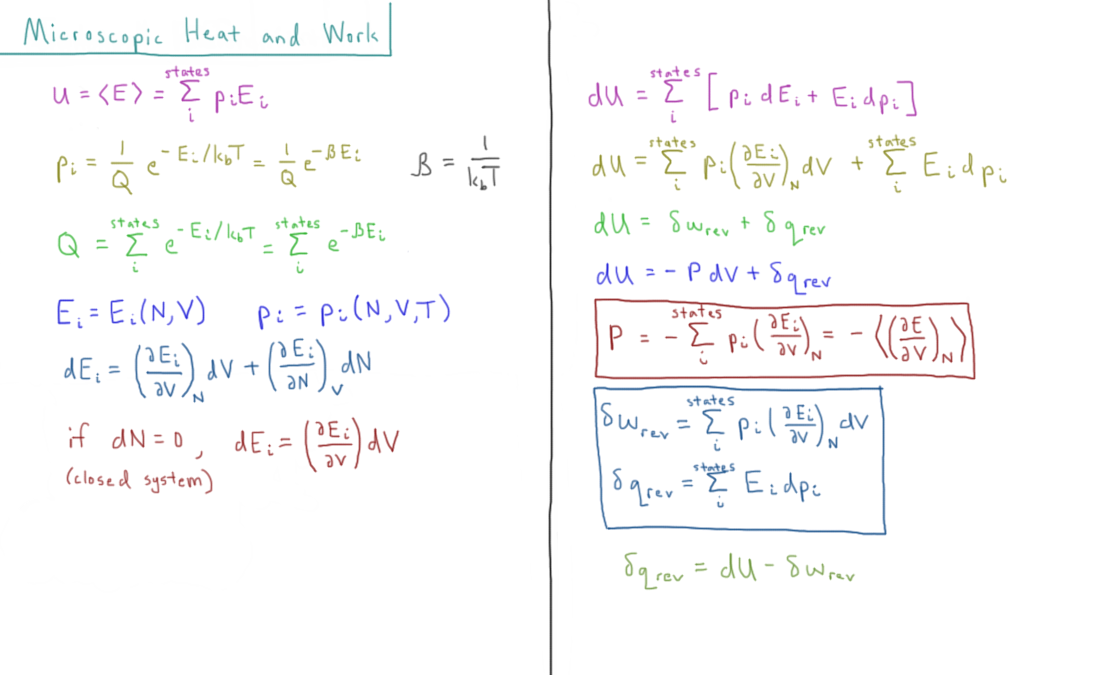 Microscopic Heat and Work
U = <E> = Σ_i^states p_i E_i
p_i = 1/Q e^(-E_i/k_bT) = 1/Q e^(-βE_i)    β = 1/(k_bT)
Q = Σ_i^states e^(-E_i/k_bT) = Σ_i^states e^(-βE_i)
E_i = E_i(N,V)    p_i = p_i(N,V,T)
dE_i = (∂E_i/∂V)_N dV + (∂E_i/∂N)_V dN
if dN=0, dE_i = (∂E_i/∂V) dV
(closed system)
dU = Σ_i^states [p_i dE_i + E_i dp_i]
dU = Σ_i^states p_i (∂E_i/∂V)_N dV + Σ_i^states E_i dp_i
dU = δw_rev + δq_rev
dU = -P dV + δq_rev
P = -Σ_i^states p_i (∂E_i/∂V)_N = -<(∂E/∂V)_N>
δw_rev = Σ_i^states p_i (∂E_i/∂V)_N dV
δq_rev = Σ_i^states E_i dp_i
δq_rev = dU - δw_rev